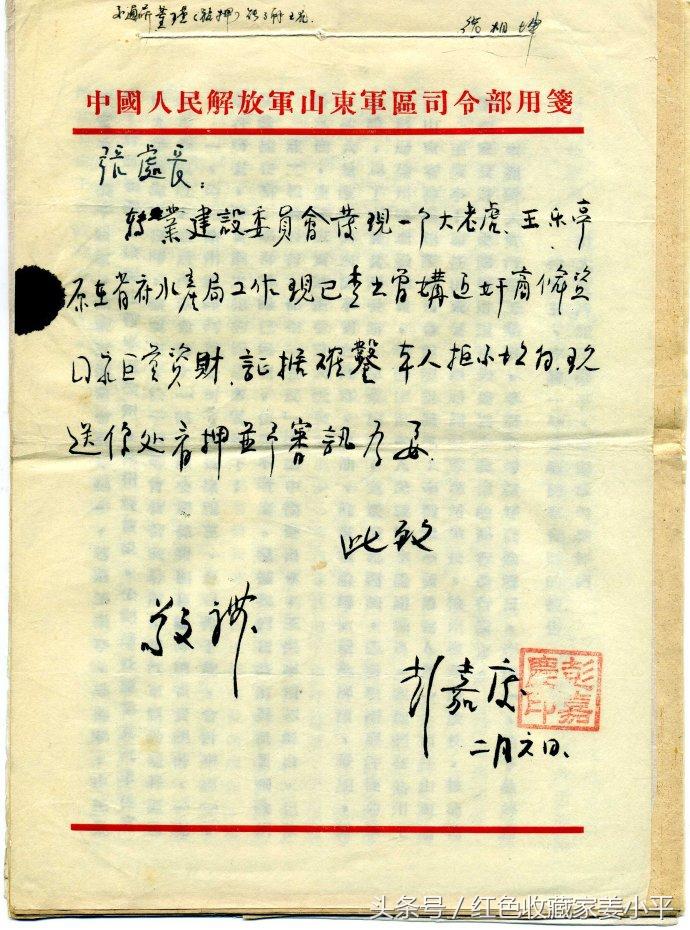 徐相坤
中國人民解放軍山東軍區司令部用箋
張處長：
轉業建設委員會發現一个大老虎、王乐亭
原在省府水產局工作现已查出曾媾通奸商偷盗
国家巨量資財、証据確鑿本人拒不坦白、现
送你处看押並予審訊为妥
此致
敬禮
彭嘉庆
彭嘉慶印
二月六日、
头条号／红色收藏家姜小平